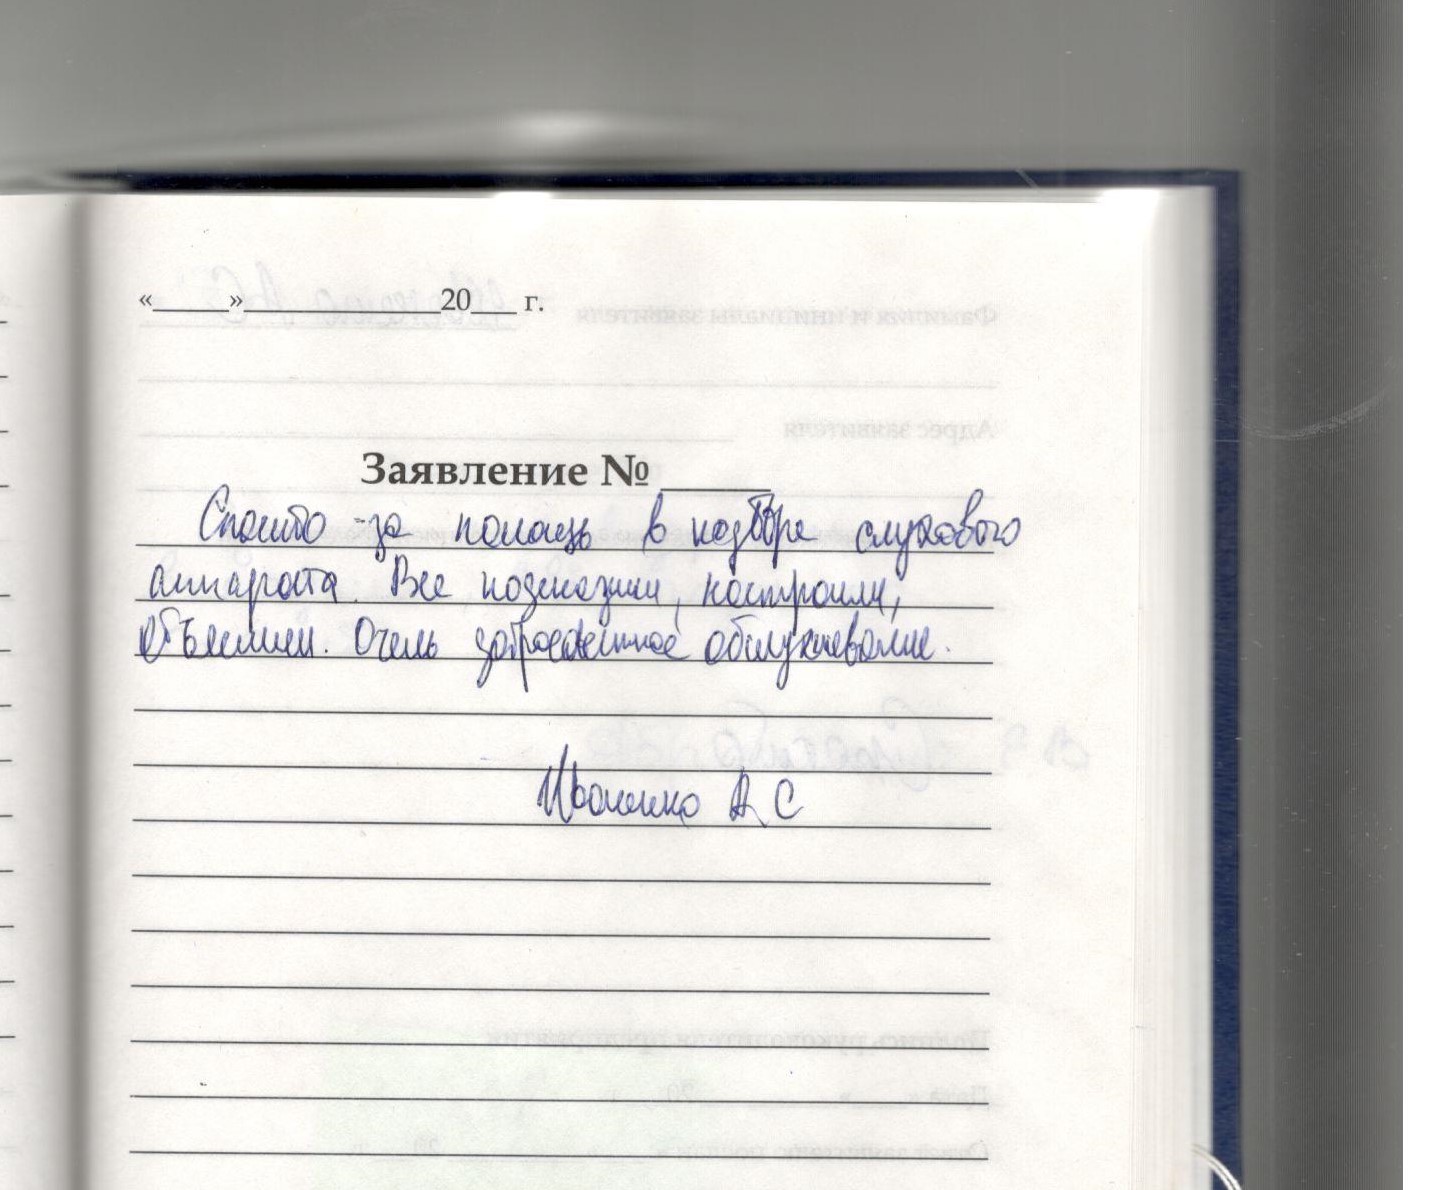 «____»____________20___ г.
Заявление № ______
Спасибо за помощь в подборе слухового
аппарата. Все подсказали, настроили,
объяснили. Очень доброжелательное обслуживание.
Иваненко А С